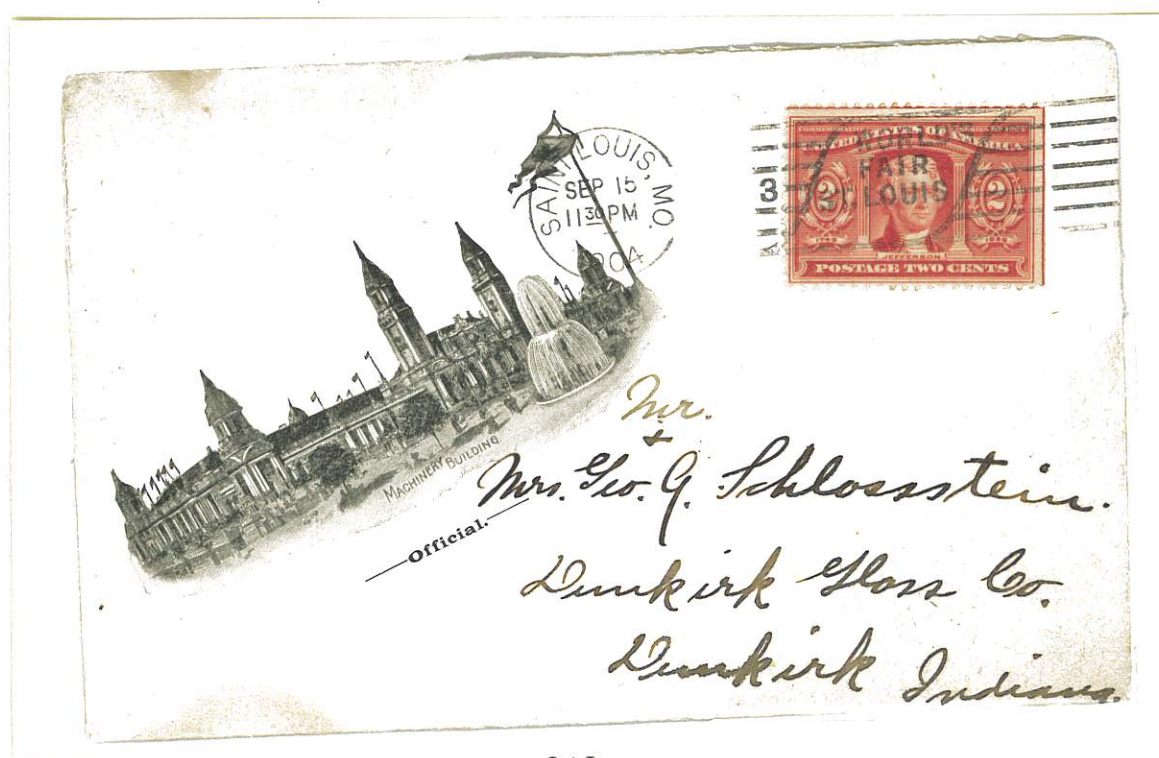 SAINT LOUIS, MO.
SEP 15
11 30 PM
1904
3
WORLD'S
FAIR
ST. LOUIS
UNITED STATES OF AMERICA
2 2
JEFFERSON
POSTAGE TWO CENTS
MACHINERY BUILDING
Official.
Mr.
+
Mrs. Geo. G. Schlossstein.
Dunkirk Glass Co.
Dunkirk Indiana.